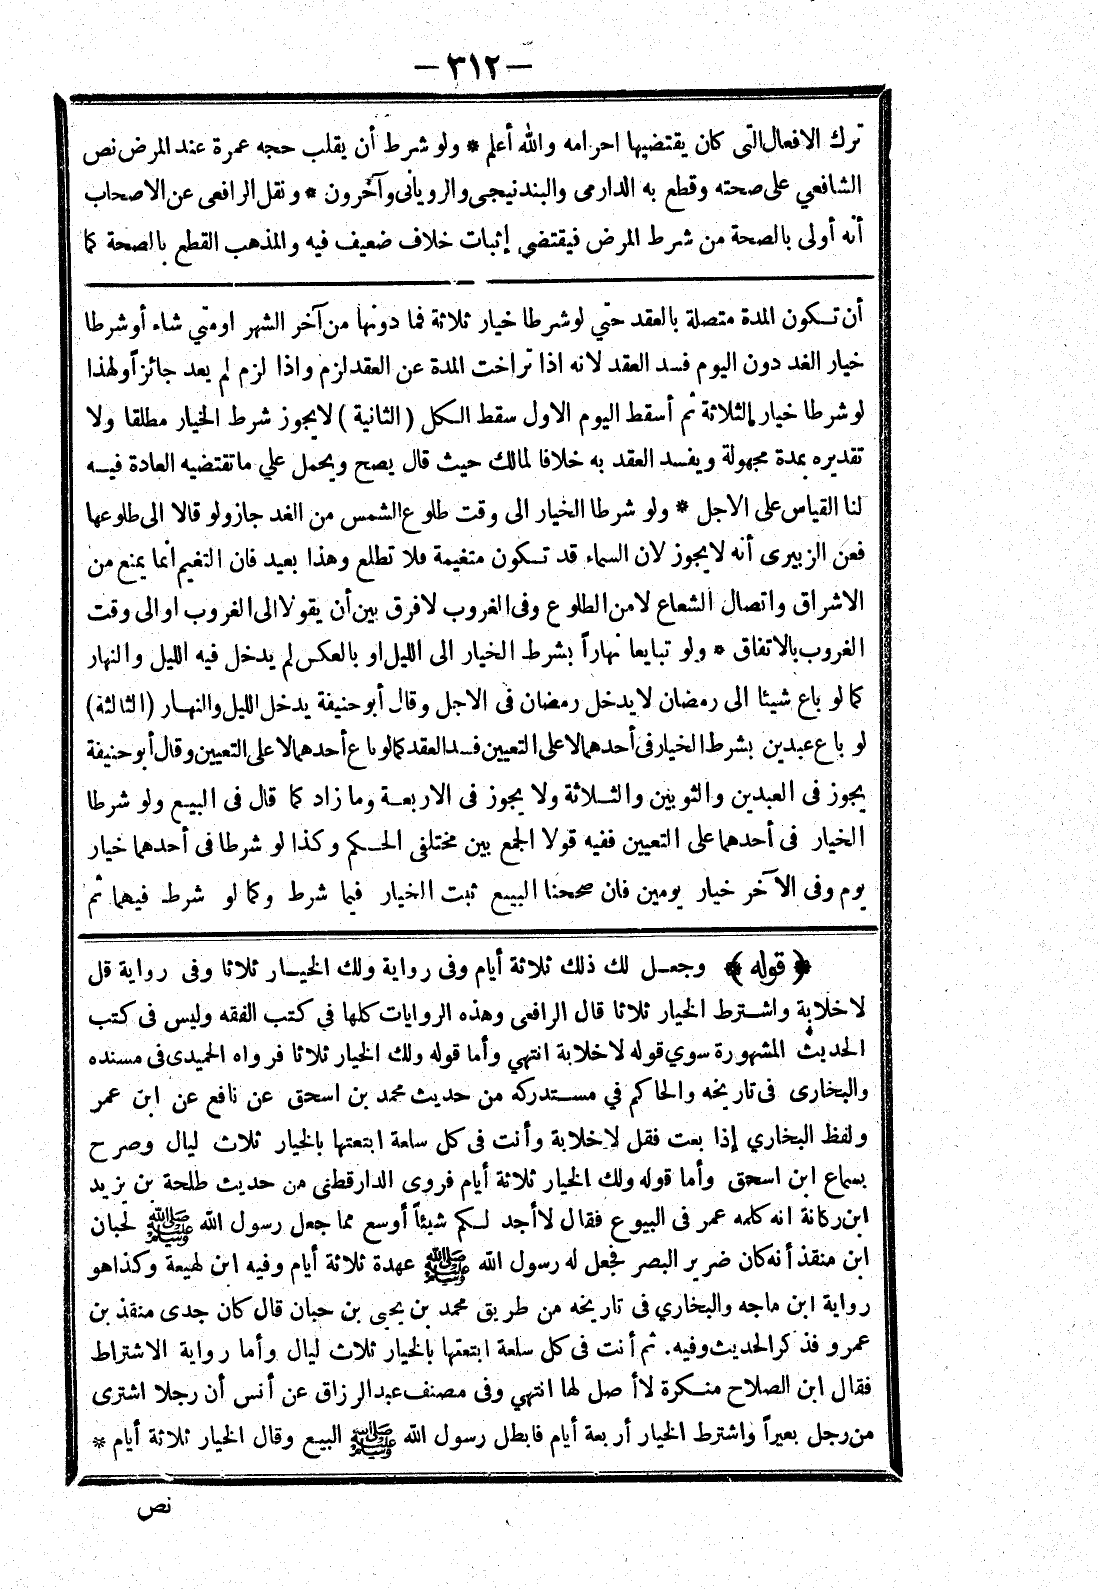 — ٣١٢ —
ترك الافعال التى كان يقتضيها احرامه والله أعلم * ولو شرط أن يقلب حجه عمرة عند المرض نص
الشافعي على صحته وقطع به الدارمى والبندنيجى والرويانى وآخرون * ونقل الرافعى عن الاصحاب
أنه أولى بالصحة من شرط المرض فيقتضي إثبات خلاف ضعيف فيه والمذهب القطع بالصحة كما
أن تكون المدة متصلة بالعقد حتي لو شرطا خيار ثلاثة فما دونها من آخر الشهر او متي شاء أو شرطا
خيار الغد دون اليوم فسد العقد لانه اذا تراخت المدة عن العقد لزم واذا لزم لم يعد جائزاً ولهذا
لو شرطا خيار الثلاثة ثم أسقط اليوم الاول سقط الكل ( الثانية ) لا يجوز شرط الخيار مطلقا ولا
تقديره بمدة مجهولة ويفسد العقد به خلافا لمالك حيث قال يصح ويحمل علي ما تقتضيه العادة فيه
لنا القياس على الاجل * ولو شرطا الخيار الى وقت طلوع الشمس من الغد جاز ولو قالا الى طلوعها
فعن الزبيرى أنه لا يجوز لان السماء قد تكون متغيمة فلا تطلع وهذا بعيد فان التغيم انما يمنع من
الاشراق واتصال الشعاع لا من الطلوع وفى الغروب لا فرق بين أن يقولا الى الغروب او الى وقت
الغروب بالاتفاق * ولو تبايعا نهاراً بشرط الخيار الى الليل او بالعكس لم يدخل فيه الليل والنهار
كما لو باع شيئا الى رمضان لا يدخل رمضان فى الاجل وقال أبو حنيفة يدخل الليل والنهار (الثالثة)
لو باع عبدين بشرط الخيار فى أحدهما لا على التعيين فسد العقد كما لو باع أحدهما لا على التعيين وقال أبو حنيفة
يجوز فى العبدين والثوبين والثلاثة ولا يجوز فى الاربعة وما زاد كما قال فى البيع ولو شرطا
الخيار فى أحدهما على التعيين ففيه قولا الجمع بين مختلفى الحكم وكذا لو شرطا فى أحدهما خيار
يوم وفى الآخر خيار يومين فان صححنا البيع ثبت الخيار فيما شرط وكما لو شرط فيهما ثم
﴿ قوله ﴾ وجعل لك ذلك ثلاثة أيام وفى رواية ولك الخيار ثلاثا وفى رواية قل
لا خلابة واشترط الخيار ثلاثا قال الرافعى وهذه الروايات كلها في كتب الفقه وليس فى كتب
الحديث المشهورة سوي قوله لا خلابة انتهي وأما قوله ولك الخيار ثلاثا فرواه الحميدى فى مسنده
والبخارى فى تاريخه والحاكم في مستدركه من حديث محمد بن اسحق عن نافع عن ابن عمر
ولفظ البخاري إذا بعت فقل لا خلابة وأنت فى كل سلعة ابتعتها بالخيار ثلاث ليال وصرح
بسماع ابن اسحق وأما قوله ولك الخيار ثلاثة أيام فروى الدارقطنى من حديث طلحة بن يزيد
ابن ركانة انه كلمه عمر فى البيوع فقال لا أجد لكم شيئاً أوسع مما جعل رسول الله ﷺ لحبان
ابن منقذ أنه كان ضرير البصر فجعل له رسول الله ﷺ عهدة ثلاثة أيام وفيه ابن لهيعة وكذا هو
رواية ابن ماجه والبخاري فى تاريخه من طريق محمد بن يحيى بن حبان قال كان جدى منقذ بن
عمرو فذكر الحديث وفيه. ثم أنت فى كل سلعة ابتعتها بالخيار ثلاث ليال وأما رواية الاشتراط
فقال ابن الصلاح منكرة لا أصل لها انتهي وفى مصنف عبد الرزاق عن أنس أن رجلا اشترى
من رجل بعيراً واشترط الخيار أربعة أيام فابطل رسول الله ﷺ البيع وقال الخيار ثلاثة أيام *
نص